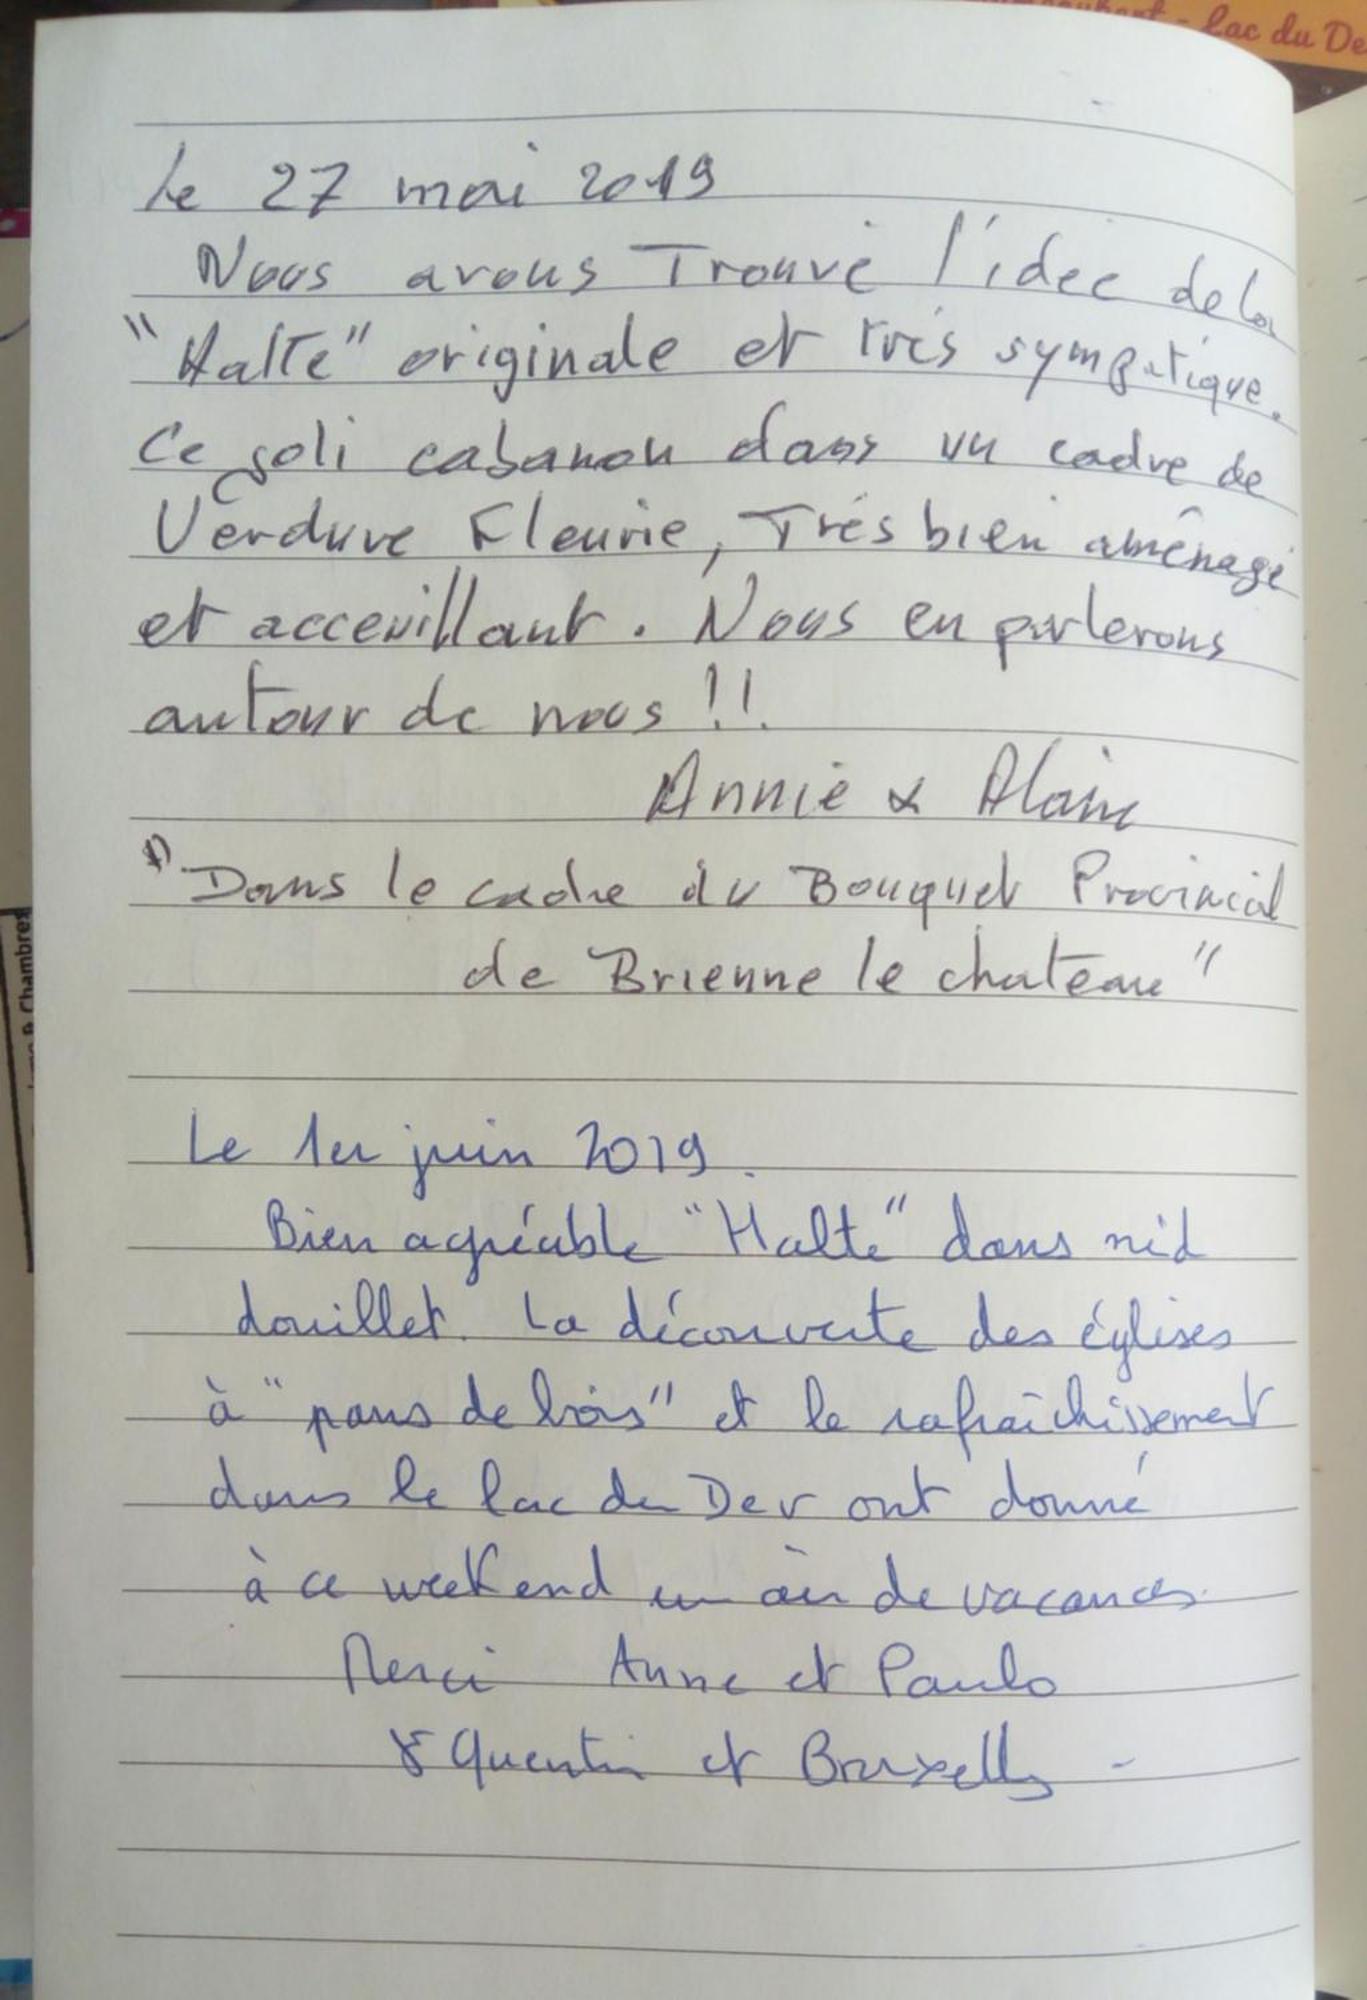 Lac du De
Le 27 mai 2019
Nous avons Trouvé l'idée de la
"Halte" originale et très sympatique.
Ce joli cabanon dans un cadre de
Verdure Fleurie, Très bien aménagé
et acceuillant. Nous en parlerons
autour de nous !!.
Annie & Alain
"Dans le cadre du Bouquet Provincial
de Brienne le chateau"
& Chambres
Le 1er juin 2019.
Bien agréable "Halte" dans nid
douillet. La découverte des églises
à "pans de bois" et le rafraîchissement
dans le lac du Der ont donné
à ce weekend un air de vacances.
Merci Anne et Paulo
St Quentin et Bruxelles -